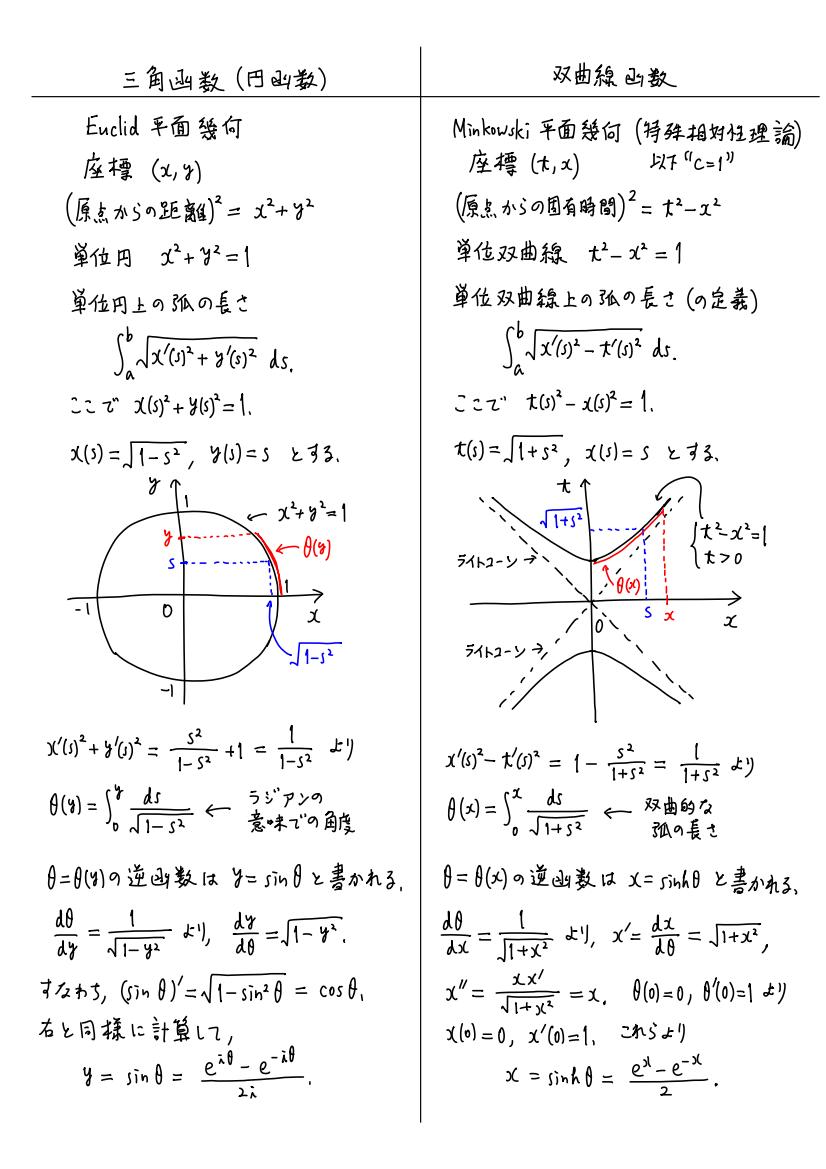 三角函数 (円函数)
Euclid 平面幾何
座標 (x, y)
(原点からの距離)² = x² + y²
単位円 x² + y² = 1
単位円上の弧の長さ
∫_a^b √(x'(s)² + y'(s)²) ds.
ここで x(s)² + y(s)² = 1.
x(s) = √(1-s²), y(s) = s とする.
y
1
x² + y² = 1
y
θ(y)
s
-1
0
1
x
√(1-s²)
-1
x'(s)² + y'(s)² = s²/(1-s²) + 1 = 1/(1-s²) より
θ(y) = ∫_0^y ds/√(1-s²) ← ラジアンの
意味での角度
θ = θ(y) の逆函数は y = sin θ と書かれる.
dθ/dy = 1/√(1-y²) より, dy/dθ = √(1-y²).
すなわち, (sin θ)' = √(1-sin²θ) = cos θ.
右と同様に計算して,
y = sin θ = (e^{iθ} - e^{-iθ})/2i.
双曲線函数
Minkowski 平面幾何 (特殊相対性理論)
座標 (t, x) 以下 "C=1"
(原点からの固有時間)² = t² - x²
単位双曲線 t² - x² = 1
単位双曲線上の弧の長さ (の定義)
∫_a^b √(x'(s)² - t'(s)²) ds.
ここで t(s)² - x(s)² = 1.
t(s) = √(1+s²), x(s) = s とする.
t
√(1+s²)
t² - x² = 1
t > 0
ライトコーン →
θ(x)
0
s
x
x
ライトコーン →
x'(s)² - t'(s)² = 1 - s²/(1+s²) = 1/(1+s²) より
θ(x) = ∫_0^x ds/√(1+s²) ← 双曲的な
弧の長さ
θ = θ(x) の逆函数は x = sinh θ と書かれる.
dθ/dx = 1/√(1+x²) より, x' = dx/dθ = √(1+x²),
x'' = xx'/√(1+x²) = x. θ(0) = 0, θ'(0) = 1 より
x(0) = 0, x'(0) = 1. これらより
x = sinh θ = (e^x - e^{-x})/2.